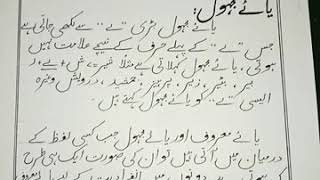 یائے مجہول:
یائے مجہول بڑی "ے" سے لکھی جاتی ہے
جس "ے" کے پہلے حرف کے نیچے علامت نہیں
ہوتی، یائے مجہول کہلاتی ہے مثلاً شیر = ش + ے + ر
بیر، زہر، جمشید، درویش وغیرہ
ایسی "ے" کو یائے مجہول کہتے ہیں۔
یائے معروف اور یائے مجہول جب کسی لفظ کے
درمیان میں آتی ہیں تو ان کی صورت ایک ہی طرح